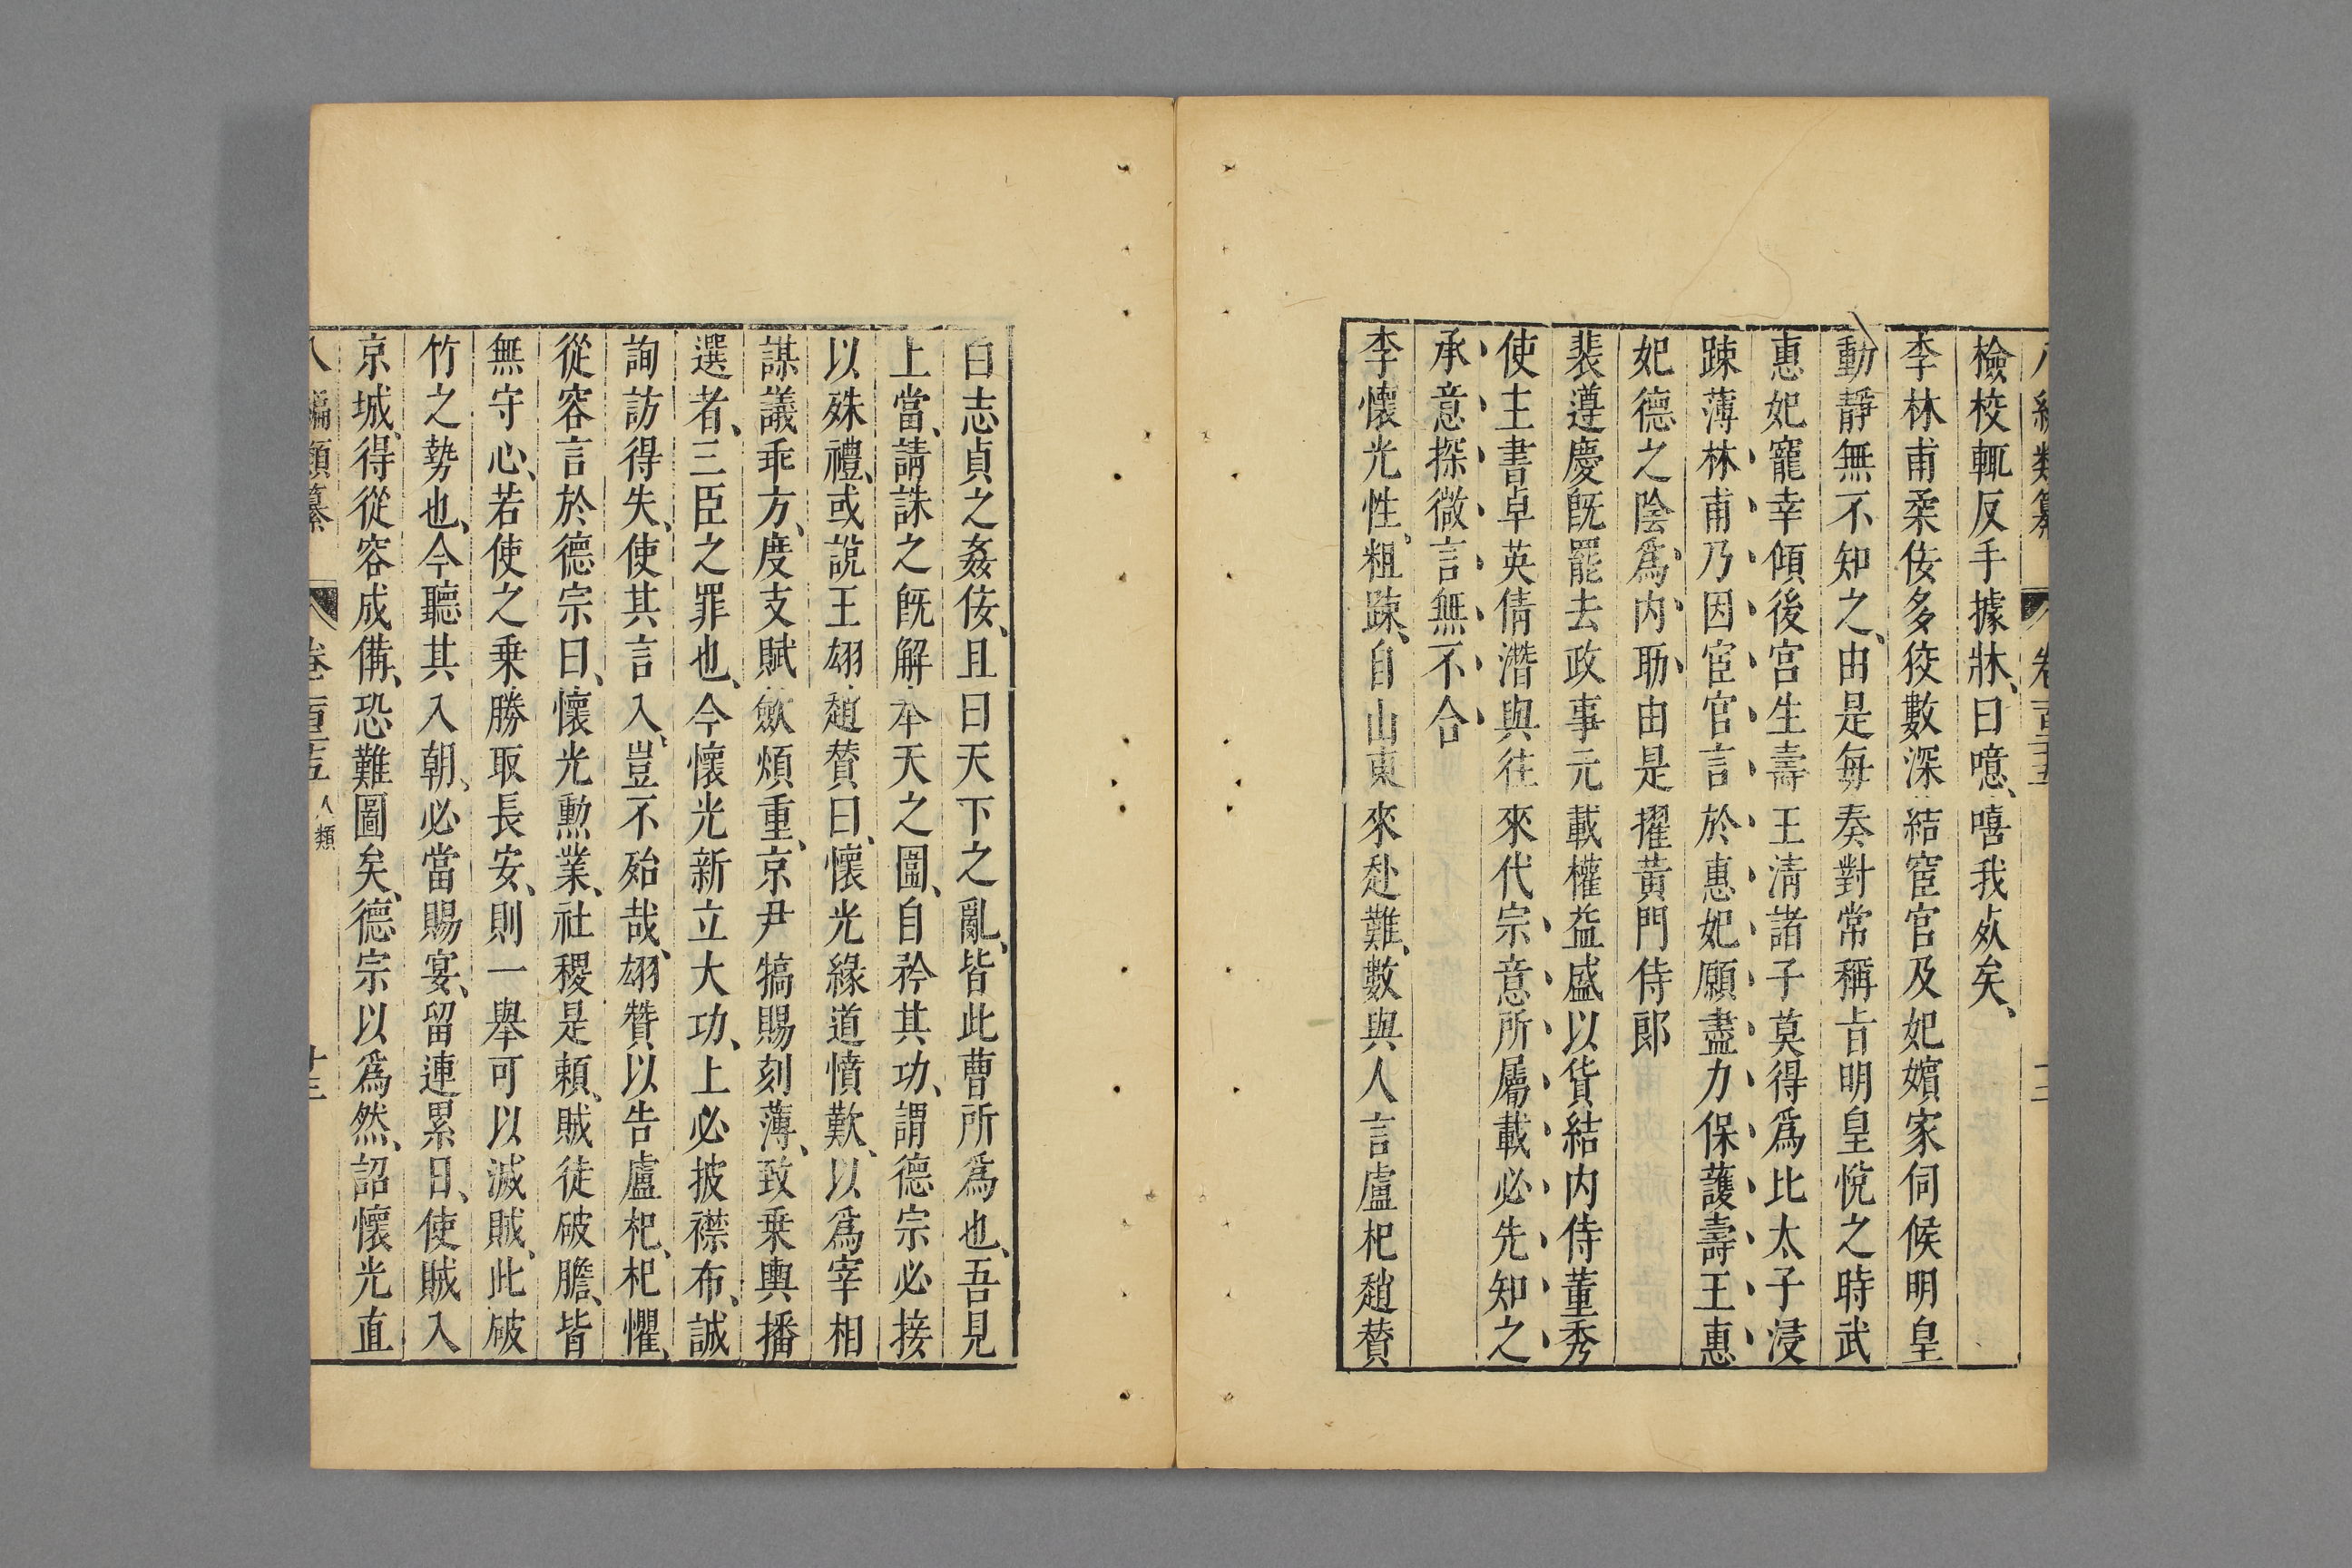 八編類纂 卷百二十五
檢校輒反手據牀、曰噫、嘻我㱙矣、
李林甫柔佞多狡數深結宦官及妃嬪家伺候明皇
動靜無不知之、由是每奏對常稱旨明皇悅之時武
惠妃寵幸傾後宮生壽王清諸子莫得爲比太子浸
踈薄林甫乃因宦官言於惠妃願盡力保護壽王惠
妃德之陰爲内助由是擢黃門侍郎
裴遵慶旣罷去政事元載權益盛以貨結内侍董秀
使主書卓英倩潛與往來代宗意所屬載必先知之
承意探微言無不合
李懷光性、粗踈、自山東來赴難、數與人言盧杞趙贊
白志貞之姦佞、且曰天下之亂、皆此曹所爲也、吾見
上當、請誅之旣解奉天之圍、自矜其功、謂德宗必接
以殊禮、或說王翃趙贊曰、懷光緣道憤歎、以爲宰相
謀議乖方、度支賦斂煩重、京尹犒賜刻薄、致乘輿播
選者、三臣之罪也、今懷光新立大功、上必披襟布、誠
詢訪得失、使其言入、豈不殆哉、翃贊以告盧杞、杞懼、
從容言於德宗曰、懷光勳業、社稷是賴、賊徒破膽、皆
無守心、若使之乘勝取長安、則一舉可以滅賊、此破
竹之勢也、今聽其入朝、必當賜宴、留連累日、使賊入
京城、得從容成備、恐難圖矣、德宗以爲然、詔懷光直
八編類纂 卷一百二十五 人類 十三